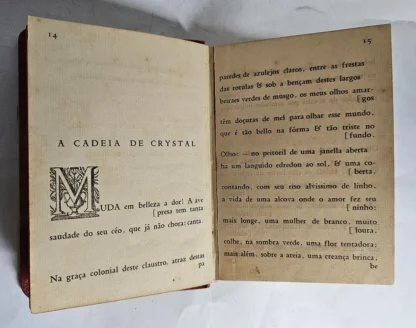 14
A CADEIA DE CRYSTAL
MUDA em belleza a dor! A ave
[ presa tem tanta
saudade do seu céo, que já não chora: canta.
Na graça colonial deste claustro, atraz destas
pa
15
paredes de azulejos claros, entre as frestas
das rotulas & sob a bençam destes largos
beiraes verdes de musgo, os meus olhos amar-
[ gos
têm doçuras de mel para olhar esse mundo,
que é tão bello na fórma & tão triste no
[ fundo.
Olho: — no peitoril de uma janella aberta
ha um languido edredon ao sol, & uma co-
[ berta,
contando, com seu riso alvissimo de linho,
a vida de uma alcova onde o amor fez seu
[ ninho;
mais longe, uma mulher de branco, muito
[ loura,
colhe, na sombra verde, uma flor tentadora;
mais além, sobre a areia, uma creança brinca,
he